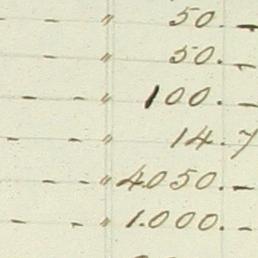 - - " 50. -
- - " 50. -
- - " 100. -
- - " 14.7
- - " 4050. -
- - " 1.000. -